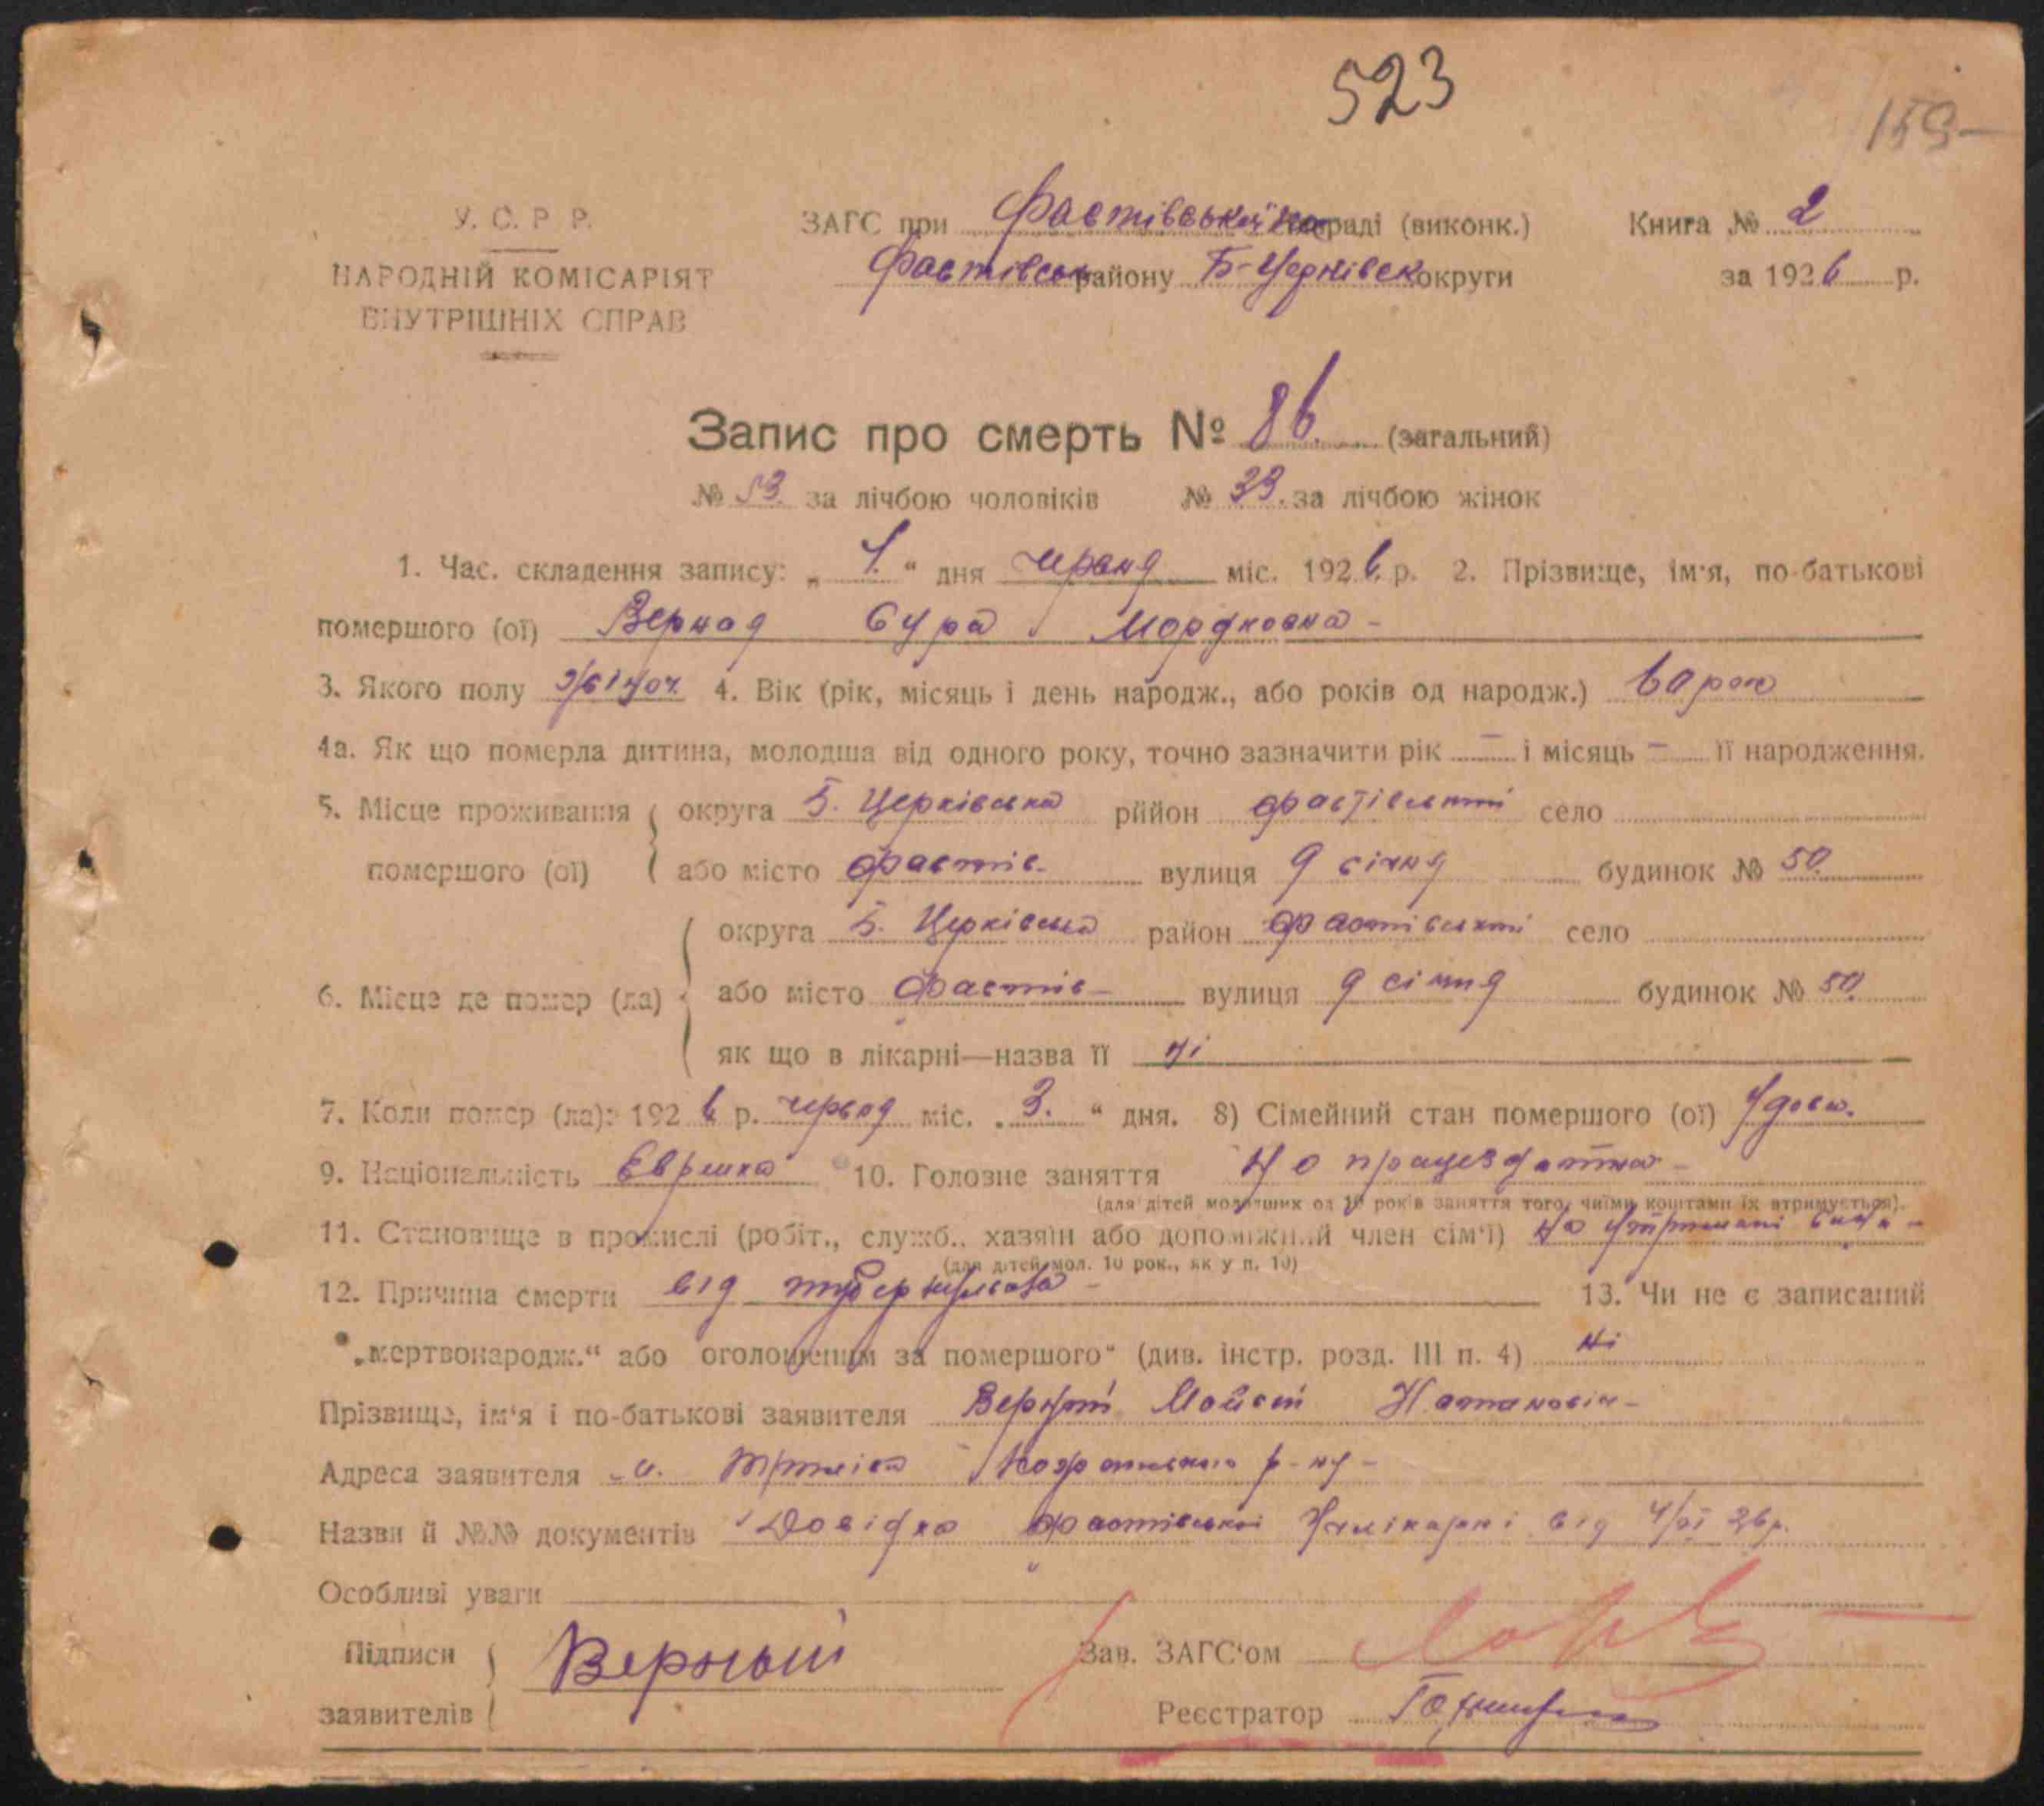 523
159-
У. С. Р. Р.
НАРОДНІЙ КОМІСАРІЯТ
ВНУТРІШНІХ СПРАВ
ЗАГС при Фастівській раді (виконк.)
Фастівськ району Б-Церківськ округи
Книга № 2
за 1926 р.
Запис про смерть № 86. (загальний)
№ 53. за лічбою чоловіків № 33. за лічбою жінок
1. Час. складення запису: „ 4. “ дня червня міс. 1926. р. 2. Прізвище, ім'я, по-батькові
помершого (ої) Верная Сура Мордковна -
3. Якого полу жіноч. 4. Вік (рік, місяць і день народж., або років од народж.) 60 рок
4а. Як що померла дитина, молодша від одного року, точно зазначити рік – і місяць – її народження.
5. Місце проживання помершого (ої) округа Б. Церківська рййон Фастівський село
або місто Фастів. вулиця 9 січня будинок № 50.
6. Місце де помер (ла) округа Б. Церківська район Фастівський село
або місто Фастів – вулиця 9 січня будинок № 50.
як що в лікарні—назва її ні
7. Коли помер (ла): 1926 р. червня міс. „ 3. “ дня. 8) Сімейний стан помершого (ої) Удова.
9. Національність Еврейка 10. Головне заняття Не працездатна -
(для дітей молодших од 10 років заняття того, чиїми коштами їх втримується).
11. Становище в промислі (робіт., служб., хазяїн або допоміжний член сім'ї) На утриманні
(для дітей мол. 10 рок., як у п. 10)
12. Причина смерти від туберкульоза - 13. Чи не є записаний
„мертвонародж.“ або оголошеним за помершого“ (див. інстр. розд. III п. 4) ні
Прізвище, ім'я і по-батькові заявителя Верний Мойсей Натанович -
Адреса заявителя р-ну -
Назви й №№ документів Довідка Фастівської від 4/VI 26 р.
Особливі уваги
Підписи заявителів Верный
Зав. ЗАГС'ом
Реєстратор